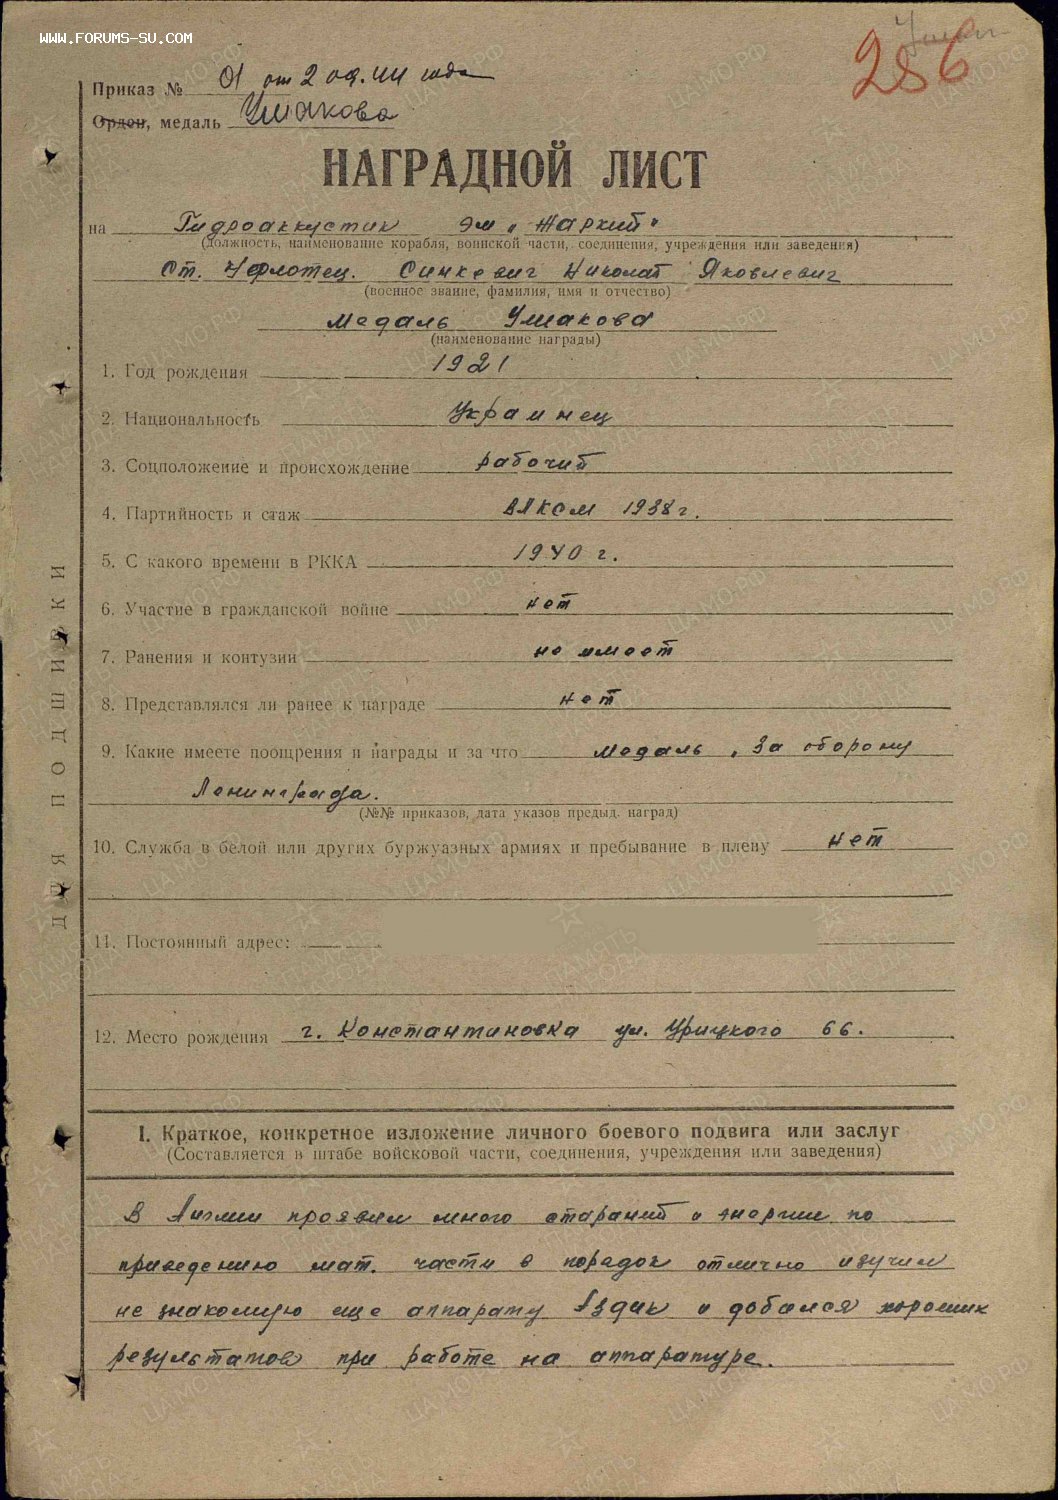 WWW.FORUMS-SU.COM
286
Приказ № 01 от 2 09.44 года
Орден, медаль Ушакова
НАГРАДНОЙ ЛИСТ
на Гидроаккустик эм „Жаркий"
(должность, наименование корабля, воинской части, соединения, учреждения или заведения)
Ст. Кр.флотец. Синкевич Николай Яковлевич
(военное звание, фамилия, имя и отчество)
Медаль Ушакова
(наименование награды)
1. Год рождения 1921
2. Национальность Украинец
3. Соцположение и происхождение рабочий
4. Партийность и стаж ВЛКСМ 1938 г.
5. С какого времени в РККА 1940 г.
6. Участие в гражданской войне нет
7. Ранения и контузии не имеет
8. Представлялся ли ранее к награде нет
9. Какие имеете поощрения и награды и за что медаль „За оборону
Ленинграда.
(№№ приказов, дата указов предыд. наград)
10. Служба в белой или других буржуазных армиях и пребывание в плену нет
11. Постоянный адрес:
12. Место рождения г. Константиновка ул. Урицкого 66.
ДЛЯ ПОДШИВКИ
I. Краткое, конкретное изложение личного боевого подвига или заслуг
(Составляется в штабе войсковой части, соединения, учреждения или заведения)
В Англии проявил много стараний и энергии по
приведению мат. части в порядок отлично изучил
не знакомую еще аппарату Аздик и добился хороших
результатов при работе на аппаратуре.